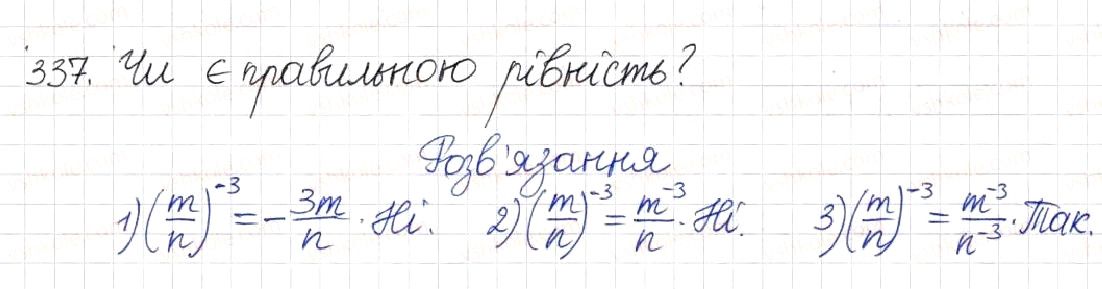 337. Чи є правильною рівність?
Розв'язання
1) (m/n)^-3 = -3m/n. Ні. 2) (m/n)^-3 = m^-3/n. Ні. 3) (m/n)^-3 = m^-3/n^-3. Так.